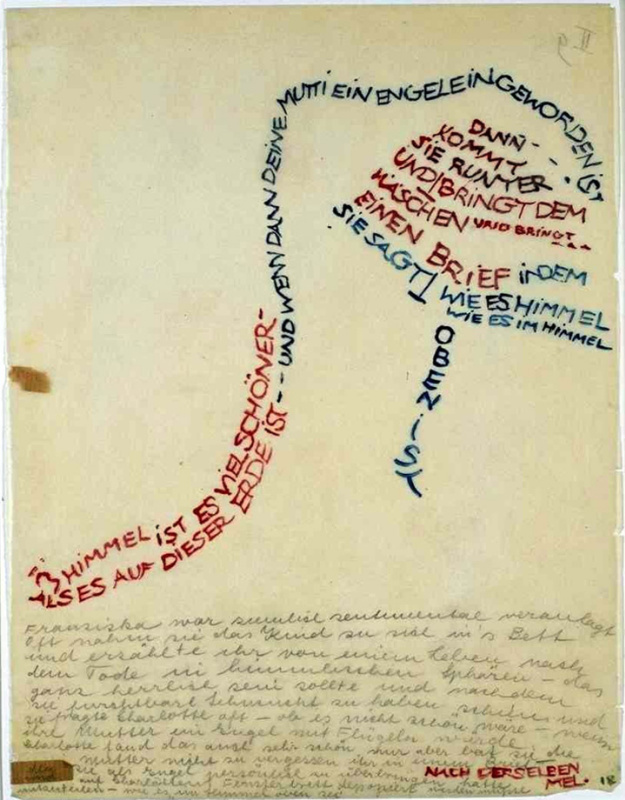 IM HIMMEL IST ES VIEL SCHÖNER –
ALS ES AUF DIESER ERDE IST – –
UND WENN DANN DEINE MUTTI EIN ENGELEIN GEWORDEN IST
DANN - - .
KOMMT
SIE RUNTER
UND BRINGT DEM
HÄSCHEN UND BRINGT...
EINEN BRIEF IN DEM
SIE SAGT WIE ES HIMMEL
WIE ES IM HIMMEL
OBEN IST
Franziska war ziemlich sentimental veranlagt
Oft nahm sie das Kind zu sich in's Bett
und erzählte ihr von einem Leben nach
dem Tode in himmlischen Sphären – das
ganz herrlich sein sollte und nachdem
sie furchtbare Sehnsucht zu haben schien und
sie fragte Charlotte oft – ob es nicht schön wäre – wenn
ihre Mutter ein Engel mit Flügeln würde
Charlotte fand das auch sehr schön nur aber bat sie die
Mutter nicht zu vergessen ihr in einem Brief
sie als Engel persönlich zu überbringen hatte
auf Charlottens Fensterbrett deponiert
mitzuteilen – wie es im Himmel oben sei
NACH DERSELBEN
MEL. 18